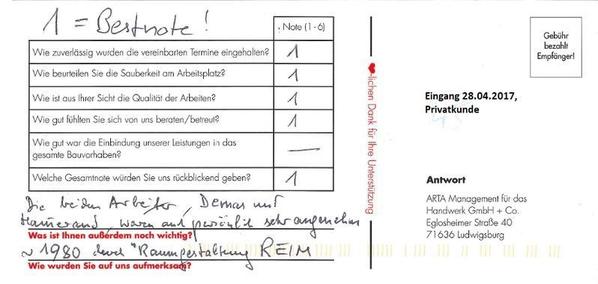 1 = Bestnote!
Note (1-6)
Wie zuverlässig wurden die vereinbarten Termine eingehalten? 1
Wie beurteilen Sie die Sauberkeit am Arbeitsplatz? 1
Wie ist aus Ihrer Sicht die Qualität der Arbeiten? 1
Wie gut fühlten Sie sich von uns beraten/betreut? 1
Wie gut war die Einbindung unserer Leistungen in das
gesamte Bauvorhaben? —
Welche Gesamtnote würden Sie uns rückblickend geben? 1
Die beiden Arbeiter,
waren auch persönlich sehr angenehm
Was ist Ihnen außerdem noch wichtig?
~ 1980 durch "Raumgestaltung REIM
Wie wurden Sie auf uns aufmerksam?
-lichen Dank für Ihre Unterstützung
Gebühr
bezahlt
Empfänger!
Eingang 28.04.2017,
Privatkunde
Antwort
ARTA Management für das
Handwerk GmbH + Co.
Eglosheimer Straße 40
71636 Ludwigsburg